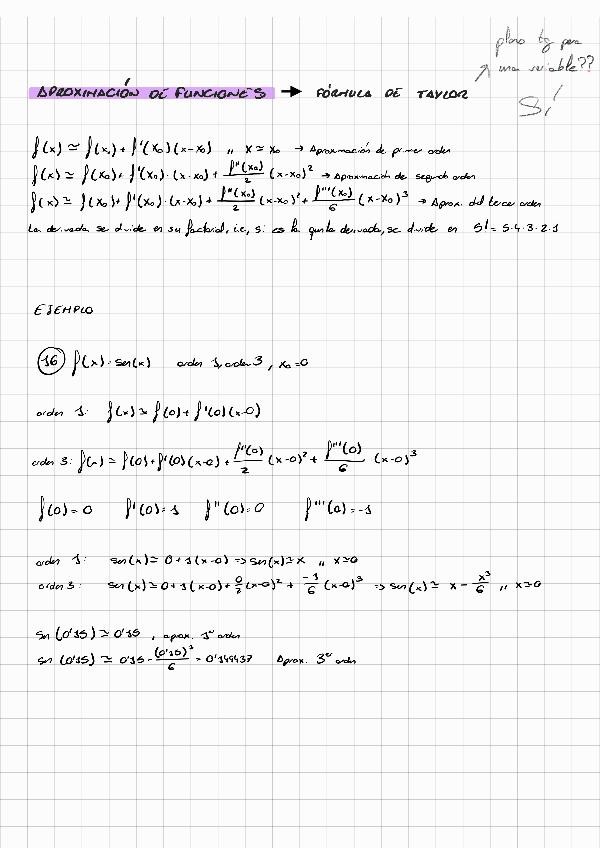 plano tg para
↗ una variable??
Sí
APROXIMACIÓN DE FUNCIONES → FÓRMULA DE TAYLOR
f(x) ≃ f(x₀) + f'(x₀)(x-x₀) ,, x ≃ x₀ → Aproximación de primer orden
f(x) ≃ f(x₀) + f'(x₀)·(x-x₀) + f''(x₀)/2 (x-x₀)² → Aproximación de segundo orden
f(x) ≃ f(x₀) + f'(x₀)·(x-x₀) + f''(x₀)/2 (x-x₀)² + f'''(x₀)/6 (x-x₀)³ → Aprox. del tercer orden
La derivada se divide en su factorial, i.e., si es la quinta derivada, se divide en 5! = 5·4·3·2·1
EJEMPLO
16 f(x) = sen(x) orden 1, orden 3, x₀=0
orden 1: f(x) ≃ f(0) + f'(0)(x-0)
orden 3: f(x) ≃ f(0) + f'(0)(x-0) + f''(0)/2 (x-0)² + f'''(0)/6 (x-0)³
f(0) = 0 f'(0) = 1 f''(0) = 0 f'''(0) = -1
orden 1: sen(x) ≃ 0 + 1(x-0) => sen(x) ≃ x ,, x≃0
orden 3: sen(x) ≃ 0 + 1(x-0) + 0/2 (x-0)² + -1/6 (x-0)³ => sen(x) ≃ x - x³/6 ,, x≃0
sen(0'15) ≃ 0'15 , aprox. 1er orden
sen(0'15) ≃ 0'15 - (0'15)³/6 = 0'149437 Aprox. 3er orden